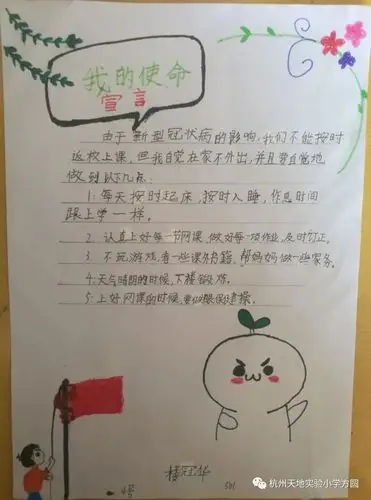 我的使命
宣言
由于新型冠状病的影响,我们不能按时
返校上课,但我自觉在家不外出,并且要自觉地
做到以下几点:
1:每天按时起床,按时入睡,作息时间
跟上学一样。
2. 认真上好每一节网课,做好每一项作业,及时订正。
3. 不玩游戏,看一些课外书籍,帮妈妈做一些家务。
4:天气晴朗的时候,下楼锻炼。
5:上好网课的时候,要做眼保健操。
楼冠华
501
杭州天地实验小学方圆